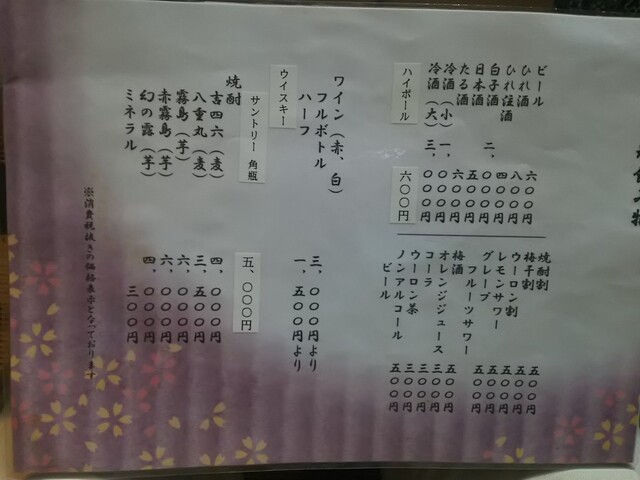 ビール 六〇〇円
ひれ酒 八〇〇円
ひれ注酒 四〇〇円
白子酒 二、〇〇〇円
日本酒 五〇〇円
たる酒 六〇〇円
冷酒（小） 一、〇〇〇円
冷酒（大） 三、〇〇〇円
ハイボール 六〇〇円
焼酎割 五〇〇円
梅干割 五〇〇円
ウーロン割 五〇〇円
レモンサワー 五〇〇円
グレープ
フルーツサワー 五〇〇円
梅酒 五〇〇円
オレンジジュース 三〇〇円
コーラ 三〇〇円
ウーロン茶 三〇〇円
ノンアルコール
ビール 五〇〇円
ワイン（赤、白）
フルボトル 三、〇〇〇円より
ハーフ 一、五〇〇円より
ウイスキー
サントリー 角瓶 五、〇〇〇円
焼酎
吉四六（麦） 四、〇〇〇円
八重丸（麦） 三、五〇〇円
霧島（芋） 六、〇〇〇円
赤霧島（芋） 六、〇〇〇円
幻の露（芋） 四、〇〇〇円
ミネラル 三〇〇円
※消費税抜きの価格表示となっております